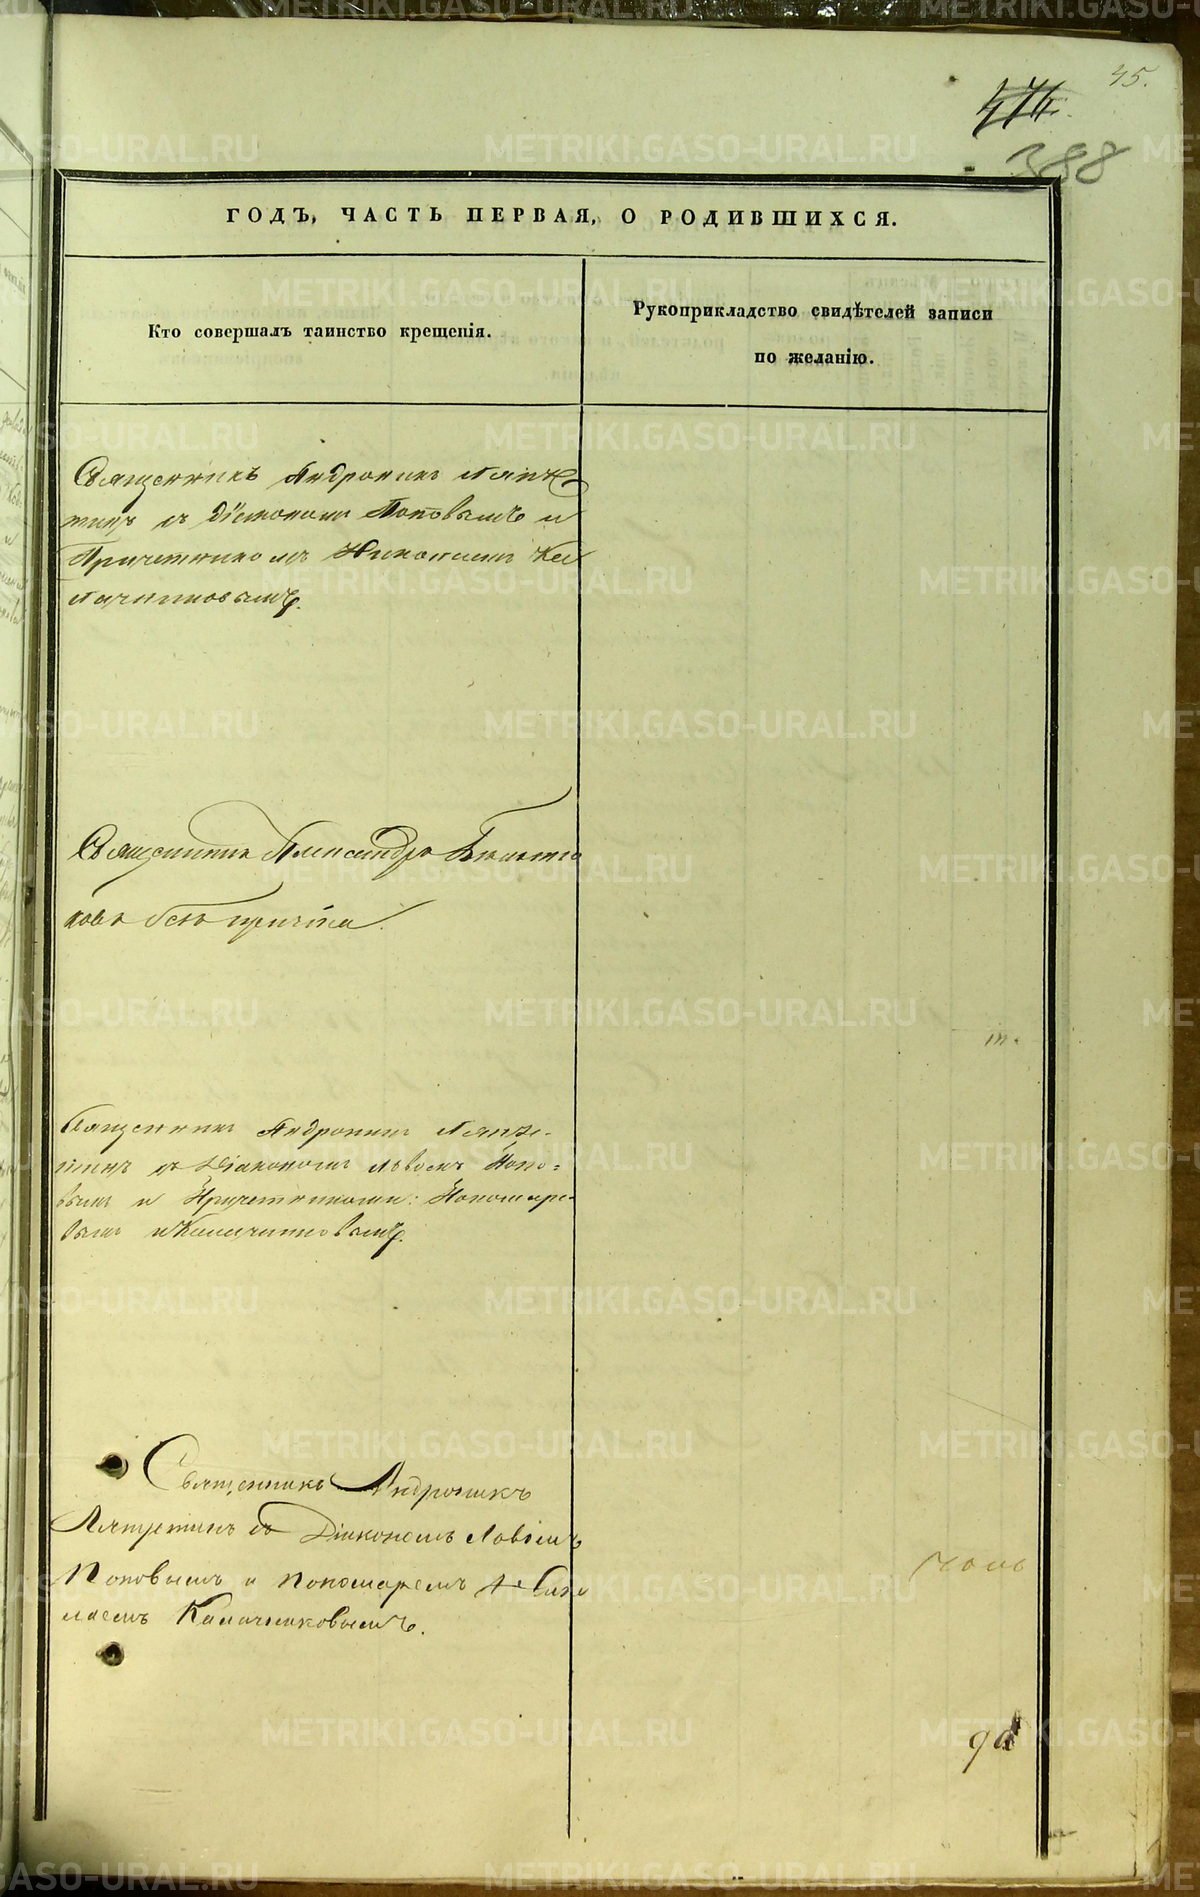 45.
474.
388
ГОДЪ, ЧАСТЬ ПЕРВАЯ, О РОДИВШИХСЯ.
Кто совершалъ таинство крещенія.
Рукоприкладство свидѣтелей записи
по желанію.
Священникъ Андроникъ
съ Діакономъ Поповымъ и
Причетникомъ Николаемъ Ка
лачниковымъ.
Священникъ Александръ
ковъ безъ причта.
Священникъ Андроникъ Ляпу-
стинъ съ Діакономъ Львомъ Попо=
вымъ и Причетниками: Пономаре-
вымъ и Калачниковымъ.
Священникъ Андроникъ
съ Діакономъ Львомъ
Поповымъ и пономаремъ Нико
лаемъ Калачниковымъ.
METRIKI.GASO-URAL.RU